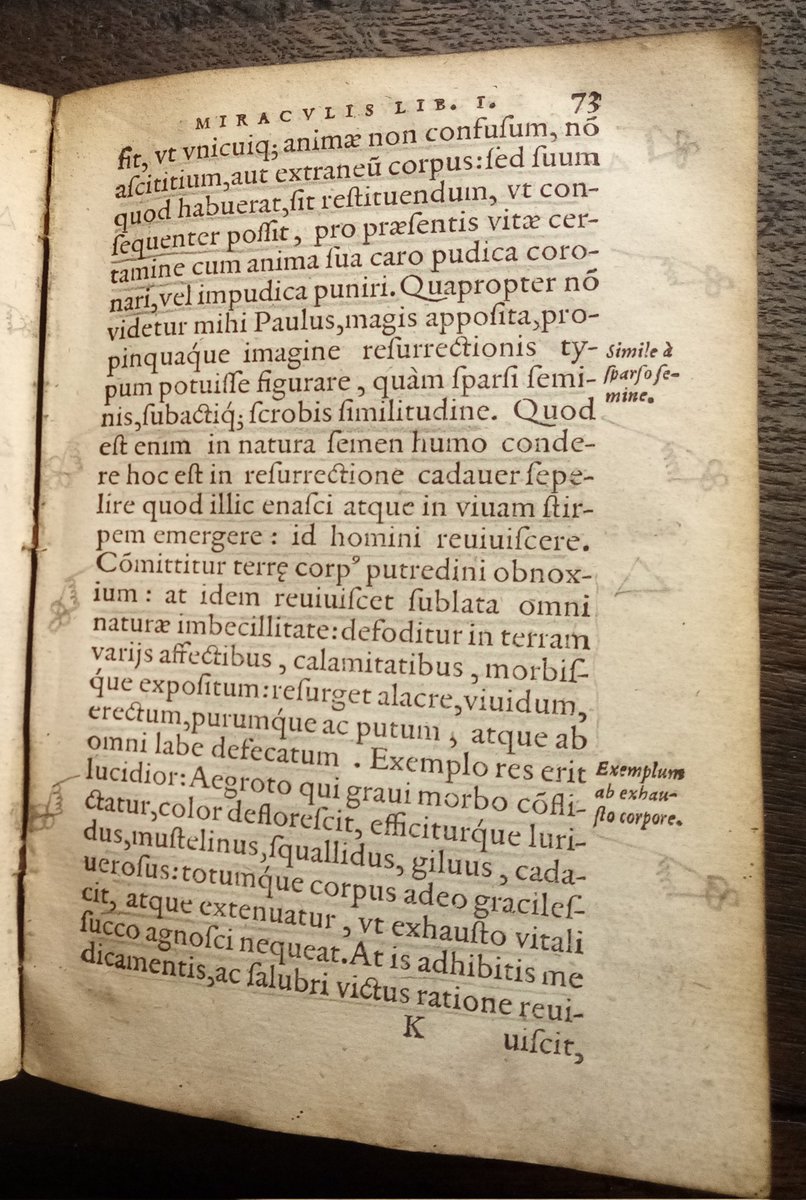 MIRACVLIS LIB. I. 73
ſit, vt vnicuiq; animæ non confuſum, nõ
aſcititium, aut extraneũ corpus: ſed ſuum
quod habuerat, ſit reſtituendum, vt con-
ſequenter poſſit, pro præſentis vitæ cer-
tamine cum anima ſua caro pudica coro-
nari, vel impudica puniri. Quapropter nõ
videtur mihi Paulus, magis appoſita, pro-
pinquaq́ue imagine reſurrectionis ty-
pum potuiſſe figurare, quàm ſparſi ſemi-
nis, ſubactiq́; ſcrobis ſimilitudine. Quod
eſt enim in natura ſemen humo conde-
re hoc eſt in reſurrectione cadauer ſepe-
lire quod illic enaſci atque in viuam ſtir-
pem emergere: id homini reuiuiſcere.
Cõmittitur terrę corpꝰ putredini obnox-
ium: at idem reuiuiſcet ſublata omni
naturæ imbecillitate: defoditur in terram
varijs affectibus, calamitatibus, morbiſ-
q́ue expoſitum: reſurget alacre, viuidum,
erectum, purumq́ue ac putum, atque ab
omni labe defecatum. Exemplo res erit
lucidior: Aegroto qui graui morbo cõfli-
ctatur, color defloreſcit, efficiturq́ue luri-
dus, muſtelinus, ſquallidus, giluus, cada-
ueroſus: totumq́ue corpus adeo gracileſ-
cit, atque extenuatur, vt exhauſto vitali
ſucco agnoſci nequeat. At is adhibitis me
dicamentis, ac ſalubri victus ratione reui-
K uiſcit,
Simile à
ſparſo ſe-
mine.
Exemplum
ab exhau-
ſto corpore.